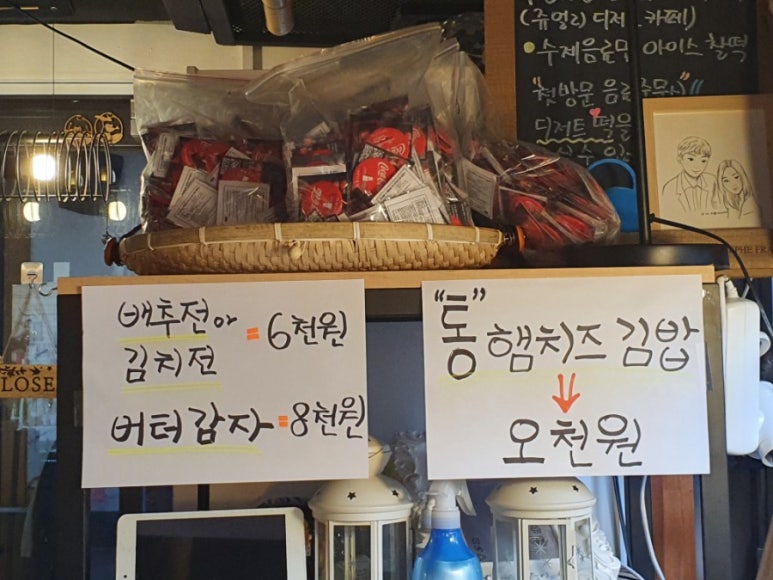 (쥬얼리 디저트 카페)
수제음료와 아이스 찰떡
"첫방문 음료
디저트 떡을
배추전 or
김치전
= 6천원
버터감자 = 8천원
"통" 햄치즈 김밥
오천원
LOSE